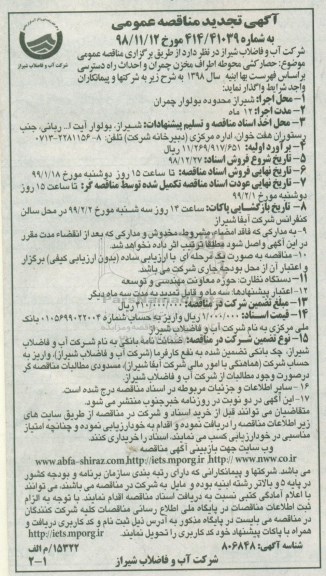 آگهی تجدید مناقصه عمومی
به شماره ۳۹-۴۱۴/۴۱ مورخ ۹۸/۱۱/۱۲
شرکت آب و فاضلاب شیراز
شرکت آب و فاضلاب شیراز در نظر دارد از طریق برگزاری مناقصه عمومی
موضوع: حصارکشی محوطه اطراف مخزن چمران و احداث راه دسترسی
براساس فهرست بها ابنیه سال ۱۳۹۸ به شرح زیر به شرکتها و پیمانکاران
واجد شرایط واگذار نماید.
۱- محل اجرا: شیراز محدوده بولوار چمران
۲- مدت اجرا: ۱۲ ماه
۳- محل اخذ اسناد مناقصه و تسلیم پیشنهادات: شیراز، بولوار آیت ا... ربانی، جنب
رستوران هفت خوان، اداره مرکزی (دبیرخانه شرکت) تلفن: ۸-۲۲۸۱۱۵۶-۰۷۱۳
۴- برآورد اولیه: ۱۱/۲۶۹/۹۱۷/۶۵۱ ریال
۵- تاریخ شروع فروش اسناد: ۹۸/۱۲/۲۷
۶- تاریخ نهایی فروش اسناد مناقصه: تا ساعت ۱۵ روز دوشنبه مورخ ۹۹/۱/۱۸
۷- تاریخ نهایی عودت اسناد مناقصه تکمیل شده توسط مناقصه گر: تا ساعت ۱۵ روز
دوشنبه مورخ ۹۹/۲/۱
۸- تاریخ بازگشایی پاکات: ساعت ۱۳ روز سه شنبه مورخ ۹۹/۲/۲ در محل سالن
کنفرانس شرکت آبفا شیراز
۹- به مدارکی که فاقد امضاء مشروط، مخدوش و مدارکی که بعد از انقضاء مدت مقرر
در این آگهی واصل شود مطلقا ترتیب اثر داده نخواهد شد.
۱۰- مناقصه به صورت یک مرحله ای با ارزیابی ساده (بدون ارزیابی کیفی) برگزار
و اعتبار آن از محل بودجه جاری شرکت می باشد.
۱۱- دستگاه نظارت: حوزه معاونت مهندسی و توسعه
۱۲- اعتبار پیشنهادها: سه ماه و قابل تمدید به مدت سه ماه دیگر
۱۳- مبلغ تضمین شرکت در مناقصه: ریال
۱۴- قیمت اسناد: ۱/۰۰۰/۰۰۰ ریال واریز به حساب شماره ۰۱۰۵۶۹۹۰۲۲۰۰۳ بانک
ملی مرکزی به نام شرکت آب و فاضلاب شیراز
۱۵- نوع تضمین شرکت در مناقصه: ضمانت نامه بانکی به نام شرکت آب و فاضلاب
شیراز، چک بانکی تضمین شده به نفع کارفرما (شرکت آب و فاضلاب شیراز)، واریز به
حساب شرکت (هماهنگی با امور مالی شرکت آبفا شیراز)، مسدودی مطالبات مناقصه گر
درصورت وجود مطالبات از شرکت آب و فاضلاب شیراز
۱۶- سایر اطلاعات و جزئیات مربوطه در اسناد مناقصه درج شده است.
۱۷- این آگهی در دو نوبت در روزنامه خبرجنوب منتشر می شود.
متقاضیان می توانند قبل از خرید اسناد و شرکت در مناقصه از طریق سایت های
زیر اطلاعات مناقصه را دریافت نموده و اقدام به خودارزیابی نموده و چنانچه امتیاز
مناسبی در خودارزیابی کسب می نمایند، اسناد را خریداری کنند.
وب سایت جهت بازبینی آگهی مناقصه
www.abfa-shiraz.com http://iets.mporg.ir http:// www.nww.co.ir
می باشد. شرکتها و پیمانکارانی که دارای رتبه بندی سازمان برنامه و بودجه کشور
در پایه ۵ و بالاتر رشته ابنیه بوده و مایل به شرکت در مناقصه می باشند، می توانند
با اعلام آمادگی کتبی نسبت به دریافت اسناد مناقصه اقدام نمایند. با توجه به الزام
ثبت اطلاعات مناقصات در پایگاه ملی اطلاع رسانی مناقصات کلیه شرکت کنندگان
در مناقصه می بایست در پایگاه مذکور به آدرس ذیل ثبت نام و کد کاربری دریافت و
همراه با پاکات پیشنهاد خود کد کاربری را تحویل نمایند. http://iets.mporg.ir
شناسه آگهی: ۸۰۶۸۴۸
۱۵۳۲۲/م الف
شرکت آب و فاضلاب شیراز
۲-۱